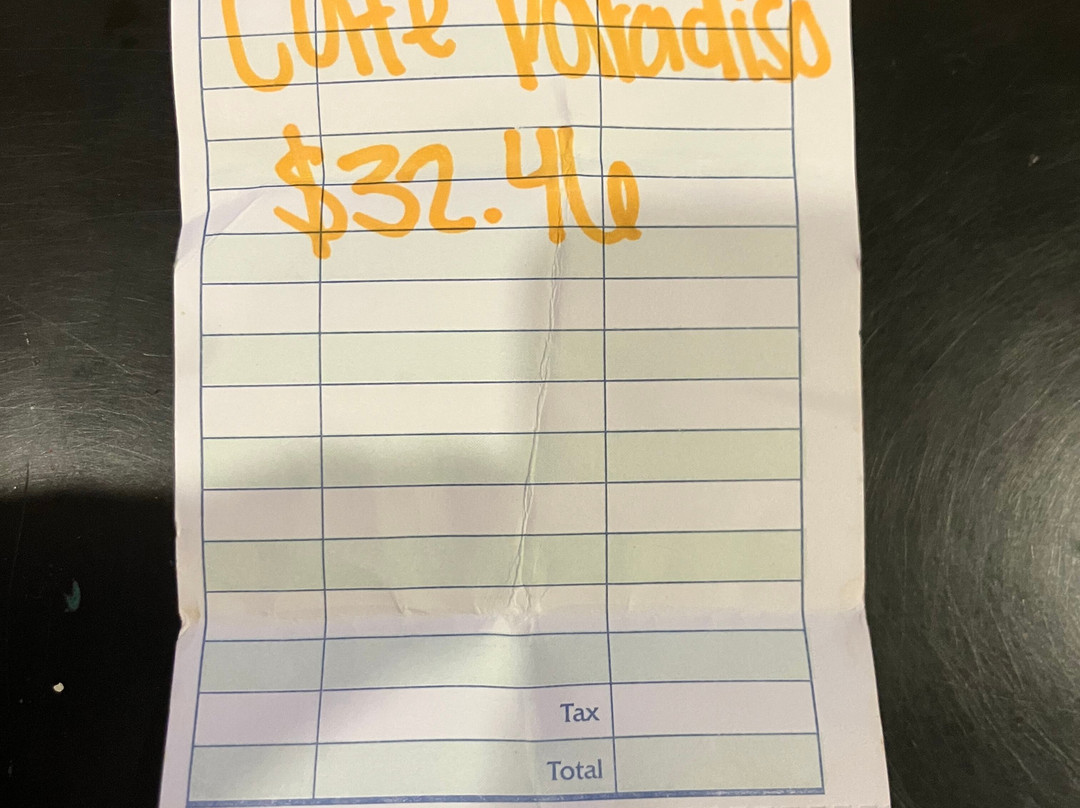 Caffe Paradiso
$32.46
Tax
Total